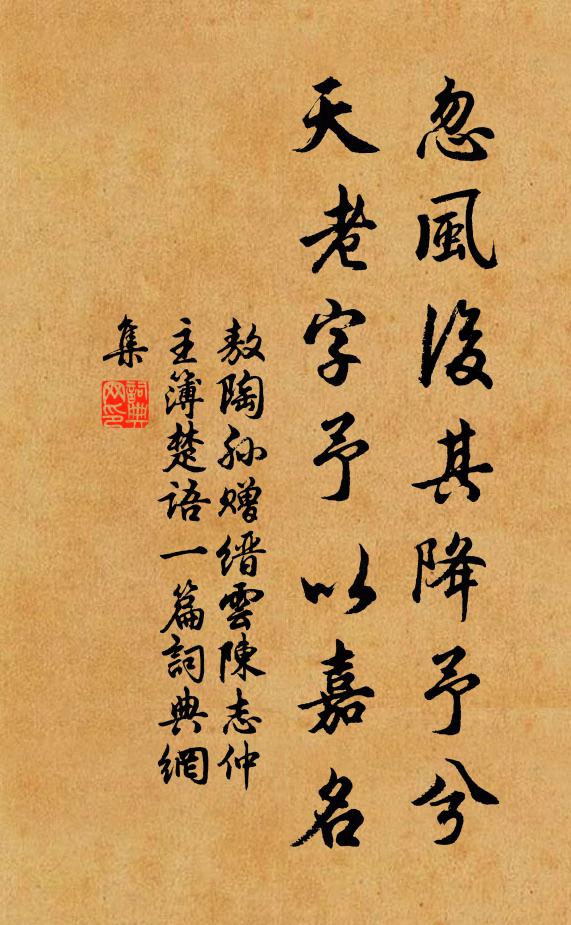 忽風後其降予兮
天老字予以嘉名
敖陶孙赠缙雲陳志仲
主簿楚語一篇詞典網
集
詞典網印